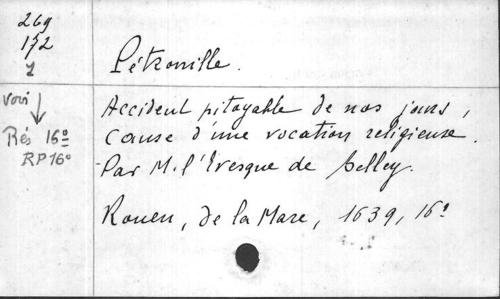 269
152
1
Pétronille.
voir
Rés 16º
RP 16º
Accident pitoyable de nos jours,
cause d'une vocation religieuse.
Par M. l'Evesque de Belley.
Rouen, de la Mare, 1639, 16º